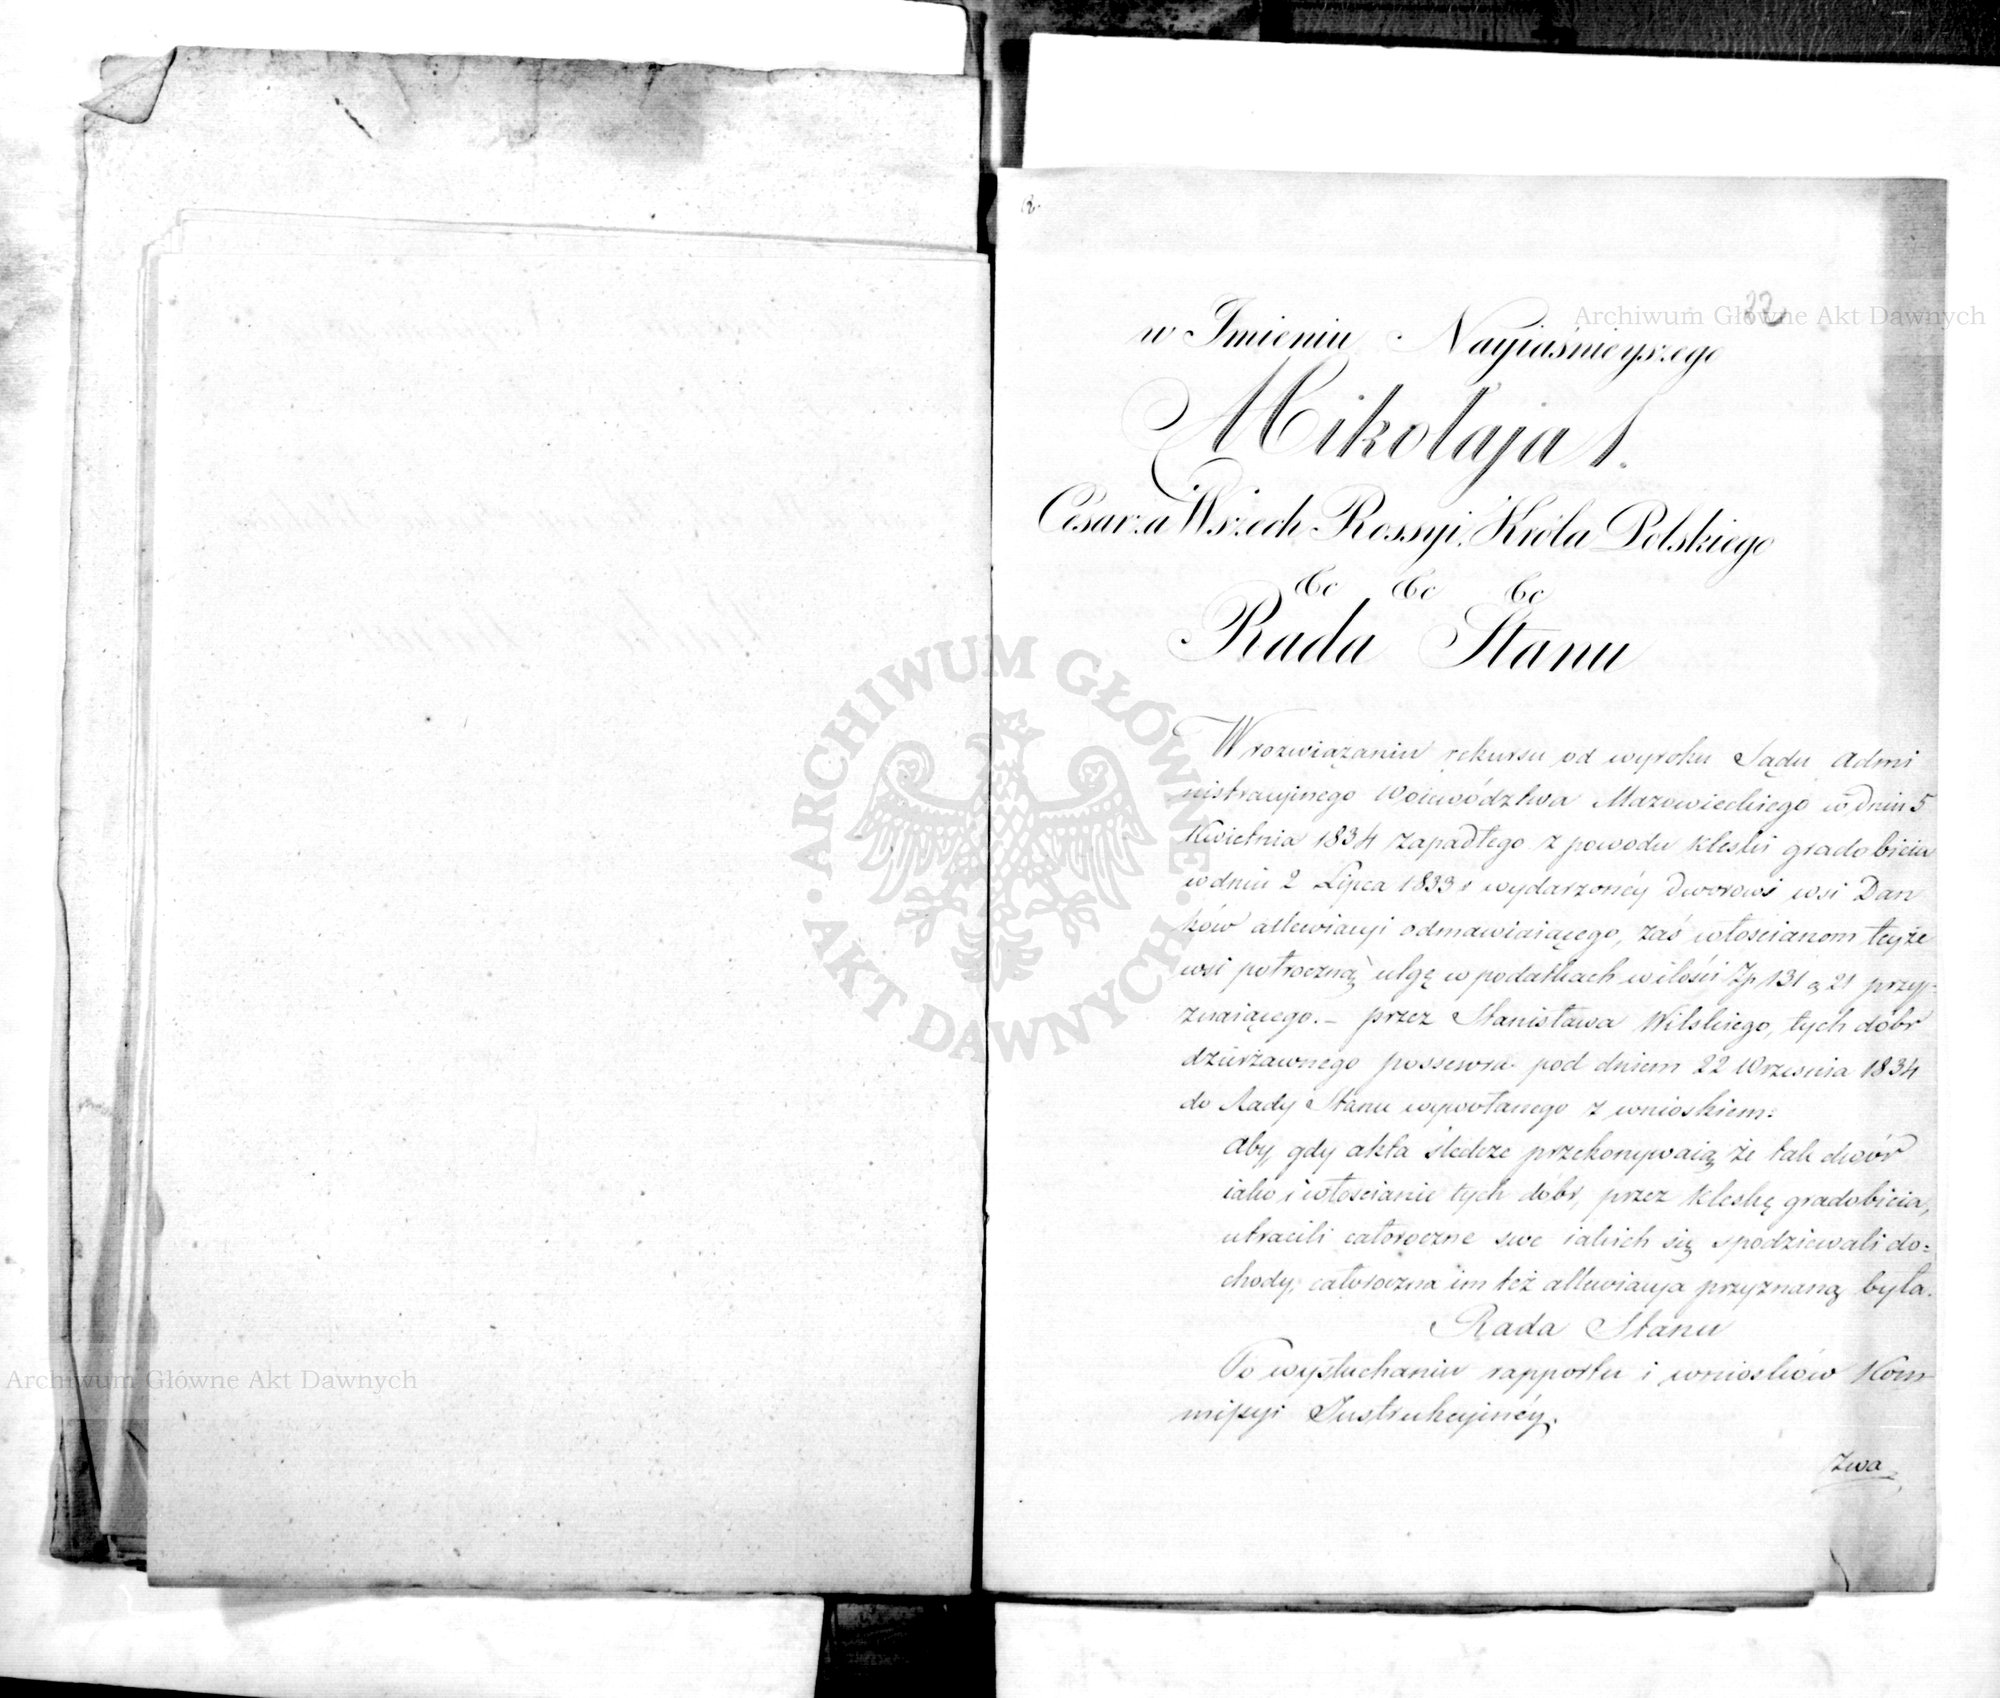 22
w Imieniu Nayiaśnieyszego
Mikołaja I.
Cesarza Wszech Rossyi, Króla Polskiego
&c &c &c
Rada Stanu
W rozwiązaniu rekursu od wyroku Sądu Admi
nistracyjnego Woiewództwa Mazowieckiego w dniu 5
Kwietnia 1834 zapadłego z powodu klęski gradobicia
w dniu 2 Lipca 1833 r wydarzonéy dworowi wsi Dan
ków allewiacyi odmawiaiącego, zaś włościanom teyże
wsi półroczną ulgę w podatkach w ilości Zp 131 g 21 przy=
znaiącego. – przez Stanisława Wilskiego, tych dóbr
dzierżawnego possessora pod dniem 22 Września 1834
do Rady Stanu wywołanego z wnioskiem:
aby, gdy akta śledcze przekonywaią że tak dwór
iako i włościanie tych dóbr, przez klęskę gradobicia,
utracili całoroczne swe iakich się spodziewali do=
chody, całoroczna im też allewiacya przyznaną była.
Rada Stanu
Po wysłuchaniu rapportu i wniosków Kom
missyi Instrukcyinéy.
Zwa
Archiwum Główne Akt Dawnych
Archiwum Główne Akt Dawnych
ARCHIWUM GŁÓWNE AKT DAWNYCH